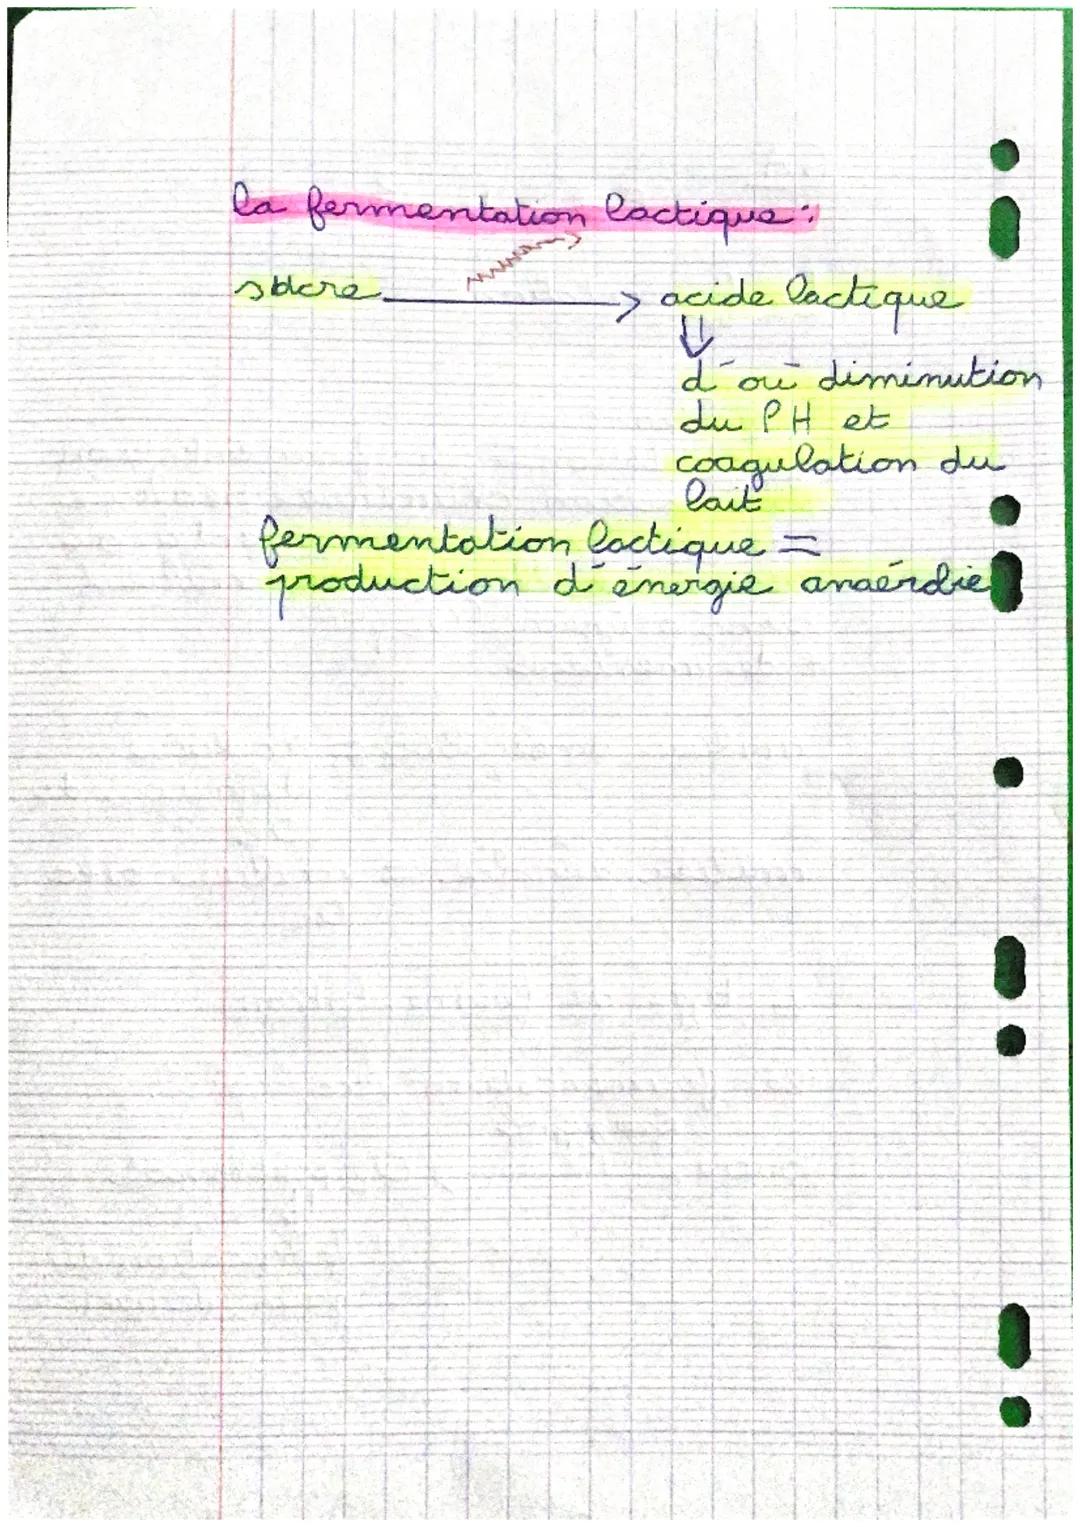 la fermentation lactique :
sucre → acide lactique
⇓
d'où diminution
du PH et
coagulation du
lait
fermentation lactique =
production d'énergie anaérobie